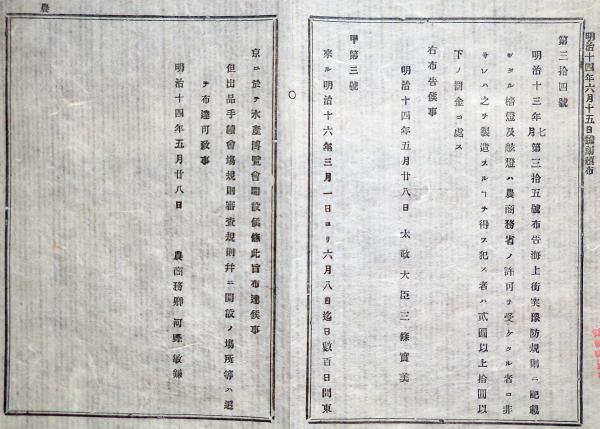 明治十四年六月十五日
第三拾四號
明治十三年七月第三拾五號布告海上衝突豫防規則ニ記載
シタル檣燈及舷燈ハ農商務省ノ許可ヲ受ケタル者ニ非
サレハ之ヲ製造スルヿヲ得ス犯ス者ハ貳圓以上拾圓以
下ノ罰金ニ處ス
右布告候事
明治十四年五月廿八日 太政大臣三條實美
甲第三號
來ル明治十六年三月一日ヨリ六月八日迄日數百日間東
京ニ於テ水產博覽會開設候條此旨布達候事
但出品手續會塲規則審査規則幷ニ開設ノ塲所等ハ追
テ布達可致事
明治十四年五月廿八日 農商務卿 河野敏鎌
農